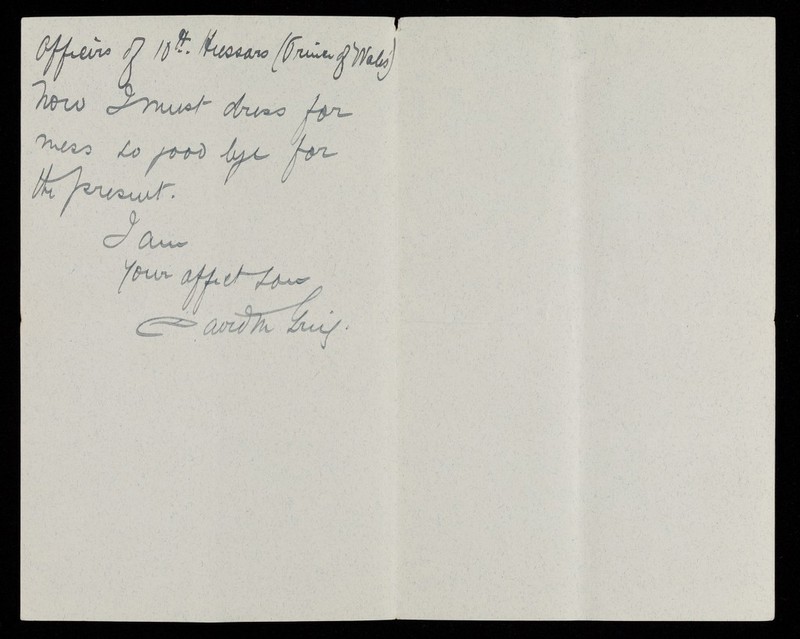 Officers of 10th. Hussars (Prince of Wales)
Now I must dress for
mess so good bye for
the present.
I am
Your affect son
David M Greig.